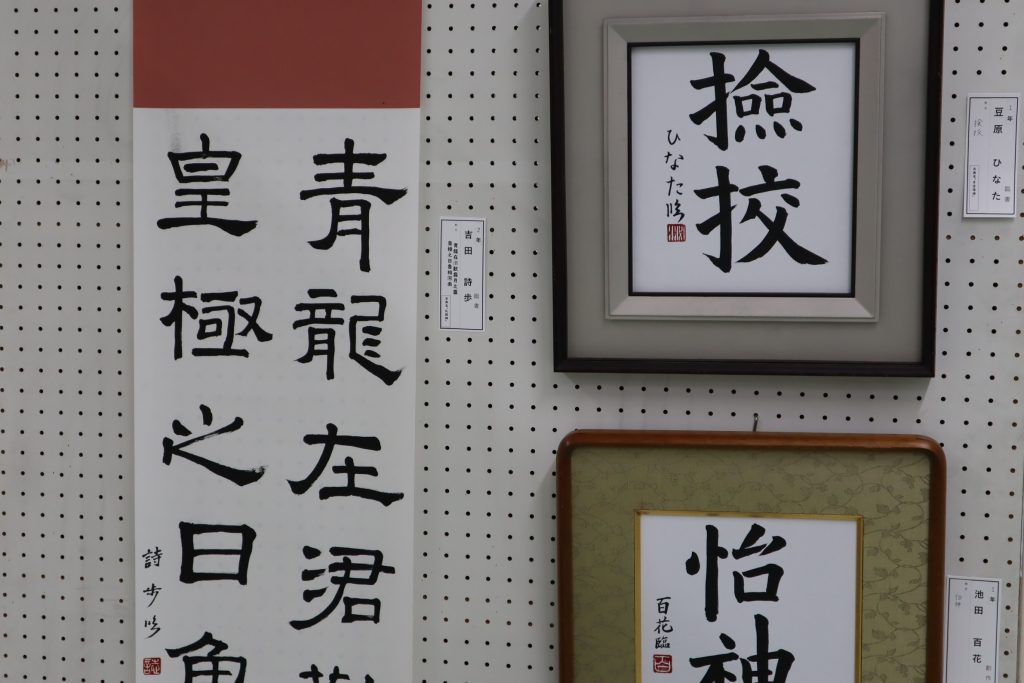 青龍在涒
皇極之日
詩歩臨
2年
吉田 詩歩
臨書
撿挍
ひなた臨
1年
豆原 ひなた
臨書
撿挍
怡神
百花臨
1年
池田 百花
創作
怡神